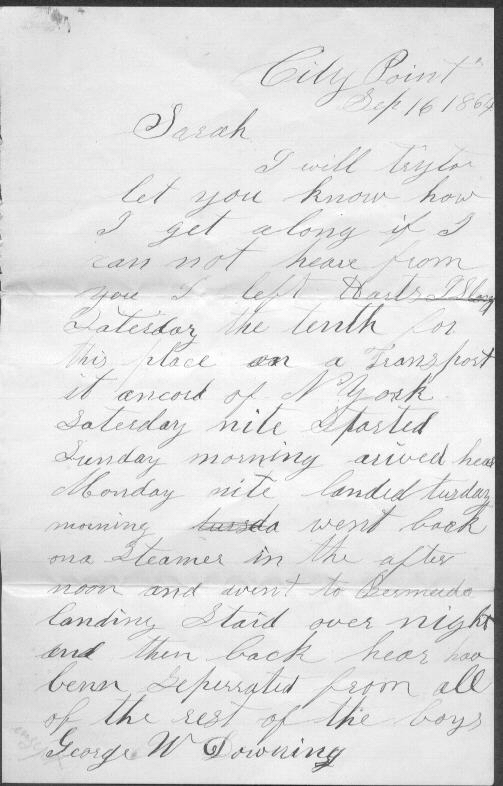 City Point
Sep 16 1864
Sarah
I will try to
let you know how
I get along if I
can not heare from
you I left Harts ISland
Saterday the tenth for
this place on a Transport
it ancord of N York
Saterday nite Started
Sunday morning arived hear
Monday nite landed tusday
morning tuesda went back
on a Steamer in the after
noon and went to Bermuda
landing Staid over night
and then back hear hav
benn Seperrated from all
of the rest of the boys
George W Downing